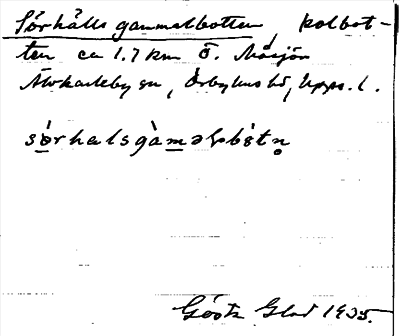 Sörhålls gammelbotten, kolbot-
ten ca 1.7 km Ö. Måsjön
Älvkarleby sn, Örbyhus hd, Upps. l.
sòrhalsgàməlbòtn̥
Gösta Glad 1935.